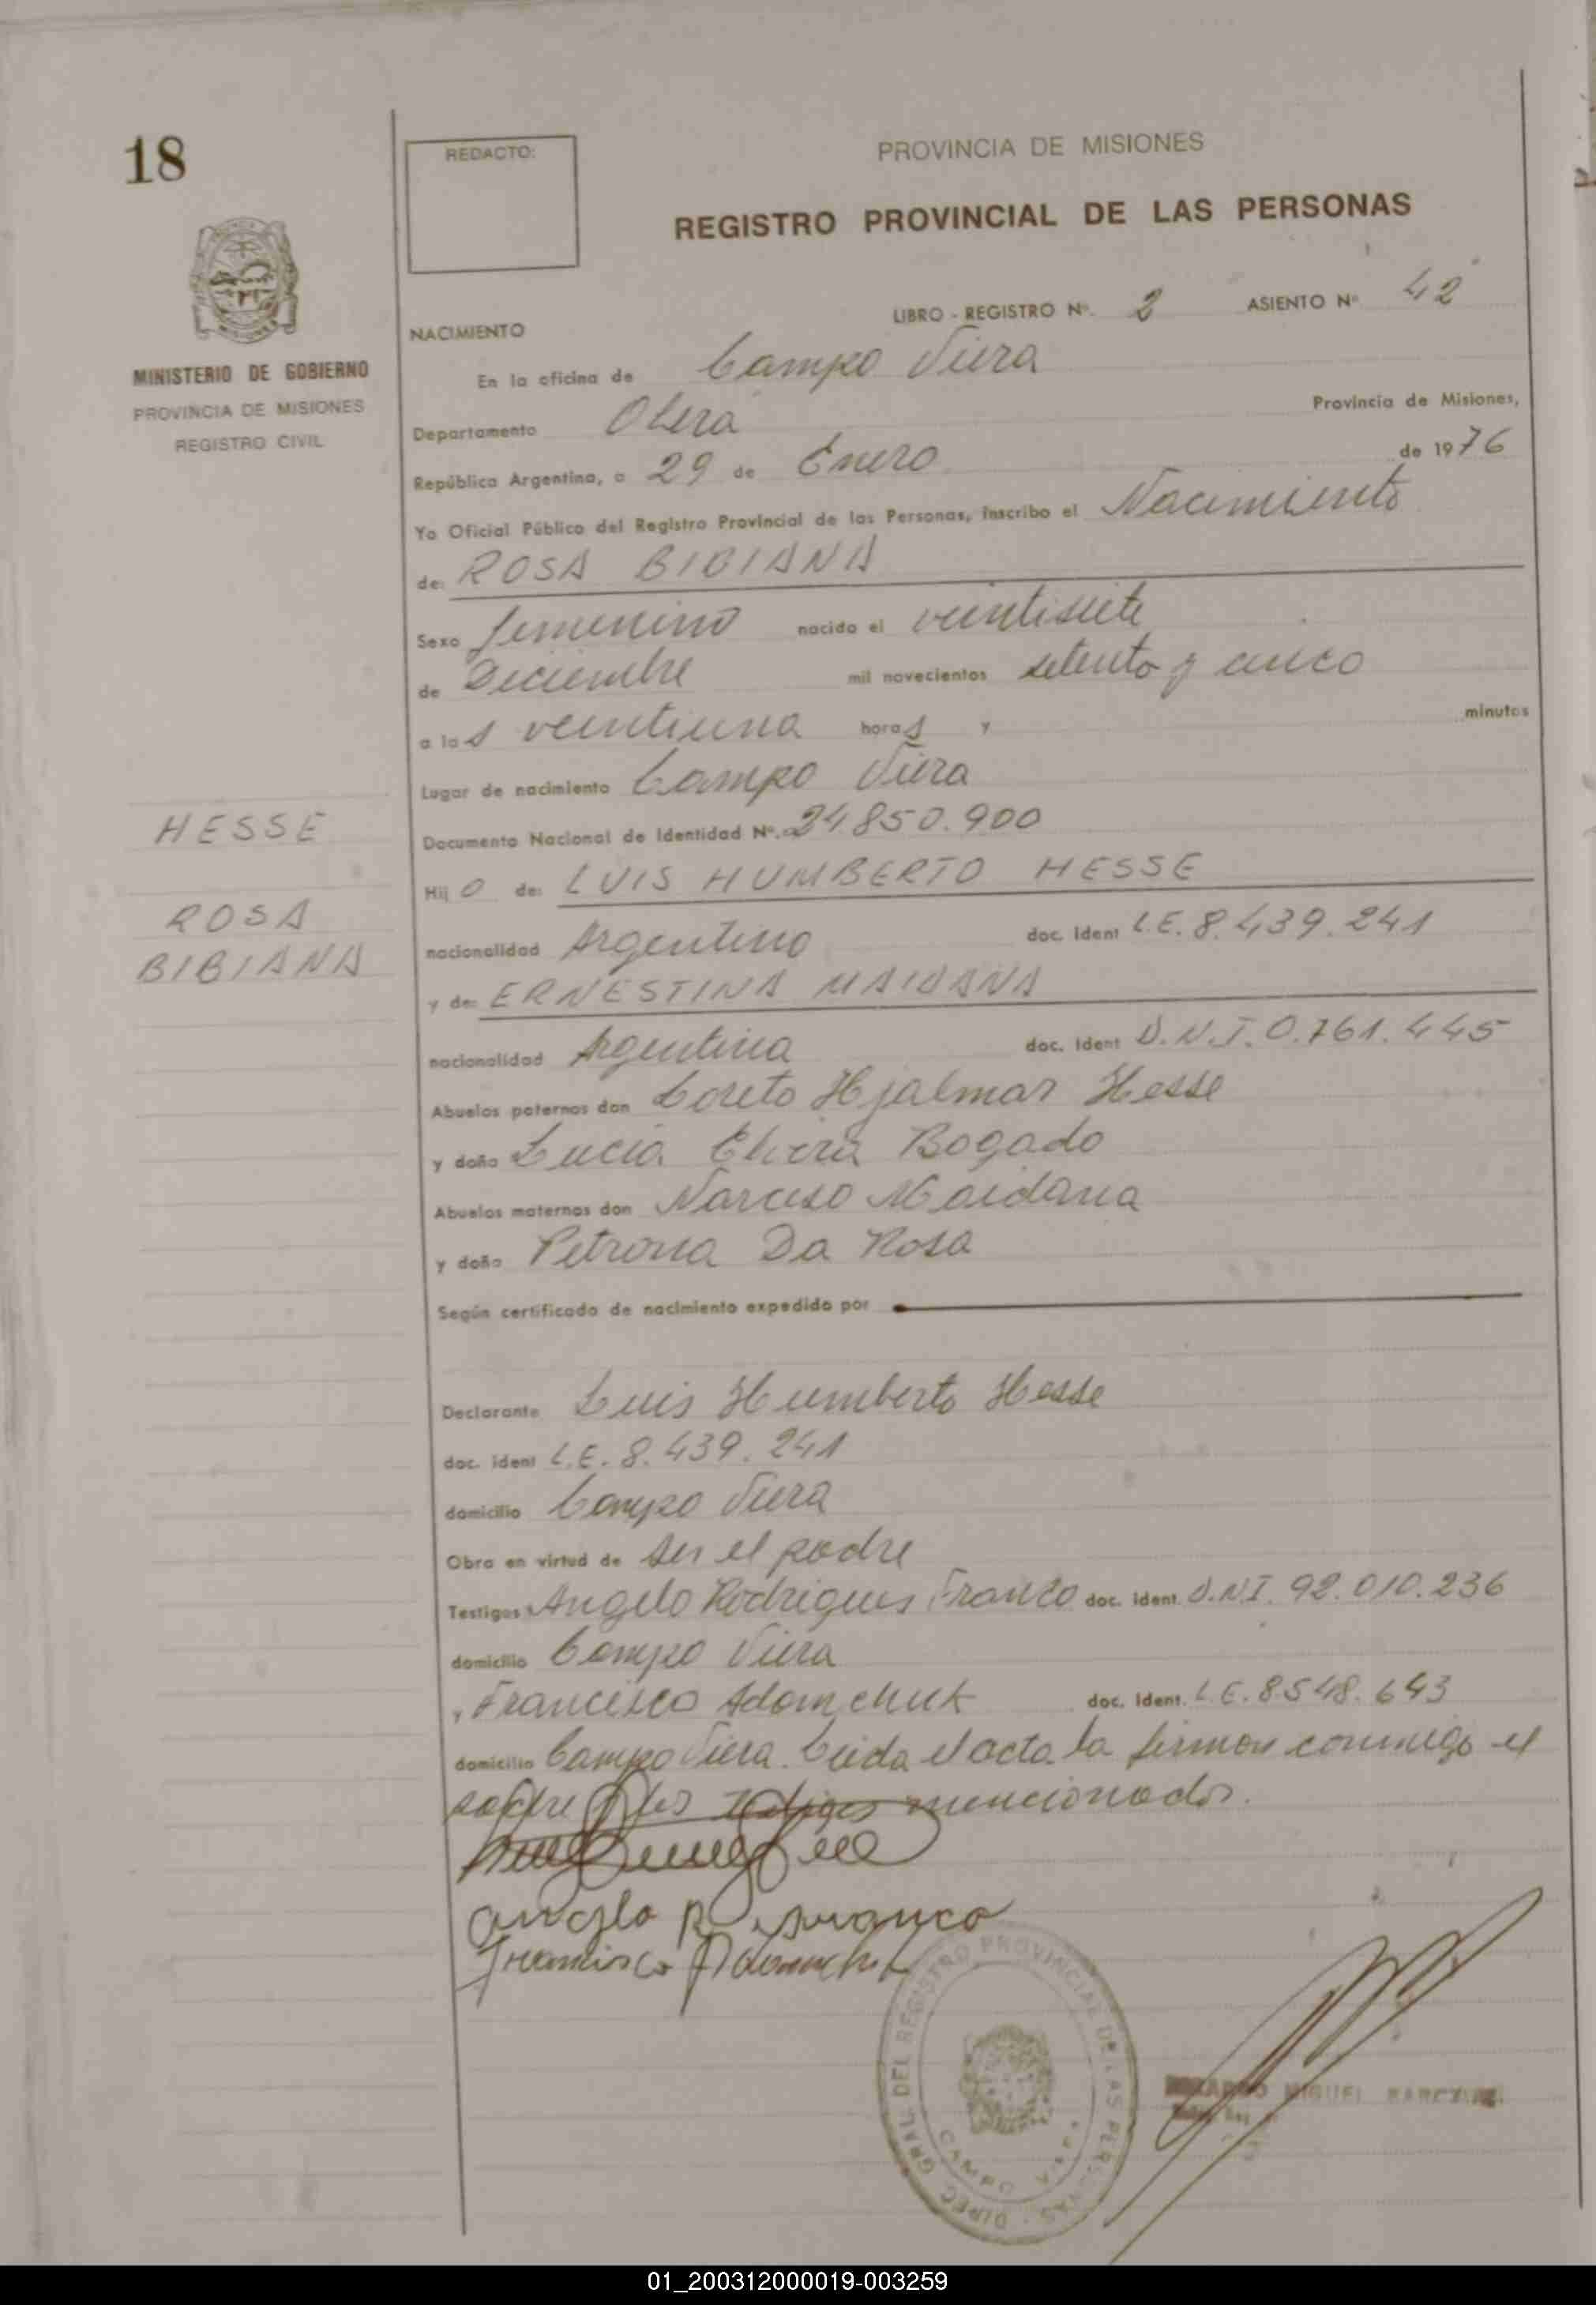 18
REDACTO:
PROVINCIA DE MISIONES
REGISTRO PROVINCIAL DE LAS PERSONAS
LIBRO - REGISTRO Nº. 2 ASIENTO Nº 42
NACIMIENTO
MINISTERIO DE GOBIERNO
PROVINCIA DE MISIONES
REGISTRO CIVIL
En la oficina de Campo Viera
Departamento Oberá Provincia de Misiones,
República Argentina, a 29 de Enero de 1976
Yo Oficial Público del Registro Provincial de las Personas, inscribo el Nacimiento
de: ROSA BIBIANA
Sexo femenino nacido el veintisiete
de Diciembre mil novecientos setenta y cinco
a las veintiuna horas y minutos
Lugar de nacimiento Campo Viera
Documento Nacional de Identidad Nº. 24.850.900
Hij o de: LUIS HUMBERTO HESSE
nacionalidad Argentino doc. ident L.E. 8.439.241
y de: ERNESTINA MAIDANA
nacionalidad Argentina doc. ident D.N.I. 0.761.445
HESSE
ROSA
BIBIANA
Abuelos paternos don Loreto Hjalmar Hesse
y doña Lucia Elvira Bogado
Abuelos maternos don Narciso Maidana
y doña Petrona Da Rosa
Según certificado de nacimiento expedido por
Declarante Luis Humberto Hesse
doc. ident L.E. 8.439.241
domicilio Campo Viera
Obra en virtud de ser el padre
Testigos Angelo Rodrigues Franco doc. ident. D.N.I. 92.010.236
domicilio Campo Viera
, Francisco Adamchuk doc. ident. L.E. 8548.643
domicilio Campo Viera. Leida el acta la firman conmigo el
padre y los testigos mencionados.
Angelo R. Franco
Francisco Adamchuk
DIREC. GRAL. DEL REGISTRO PROVINCIAL DE LAS PERSONAS
CAMPO VIERA
MIGUEL
01_200312000019-003259